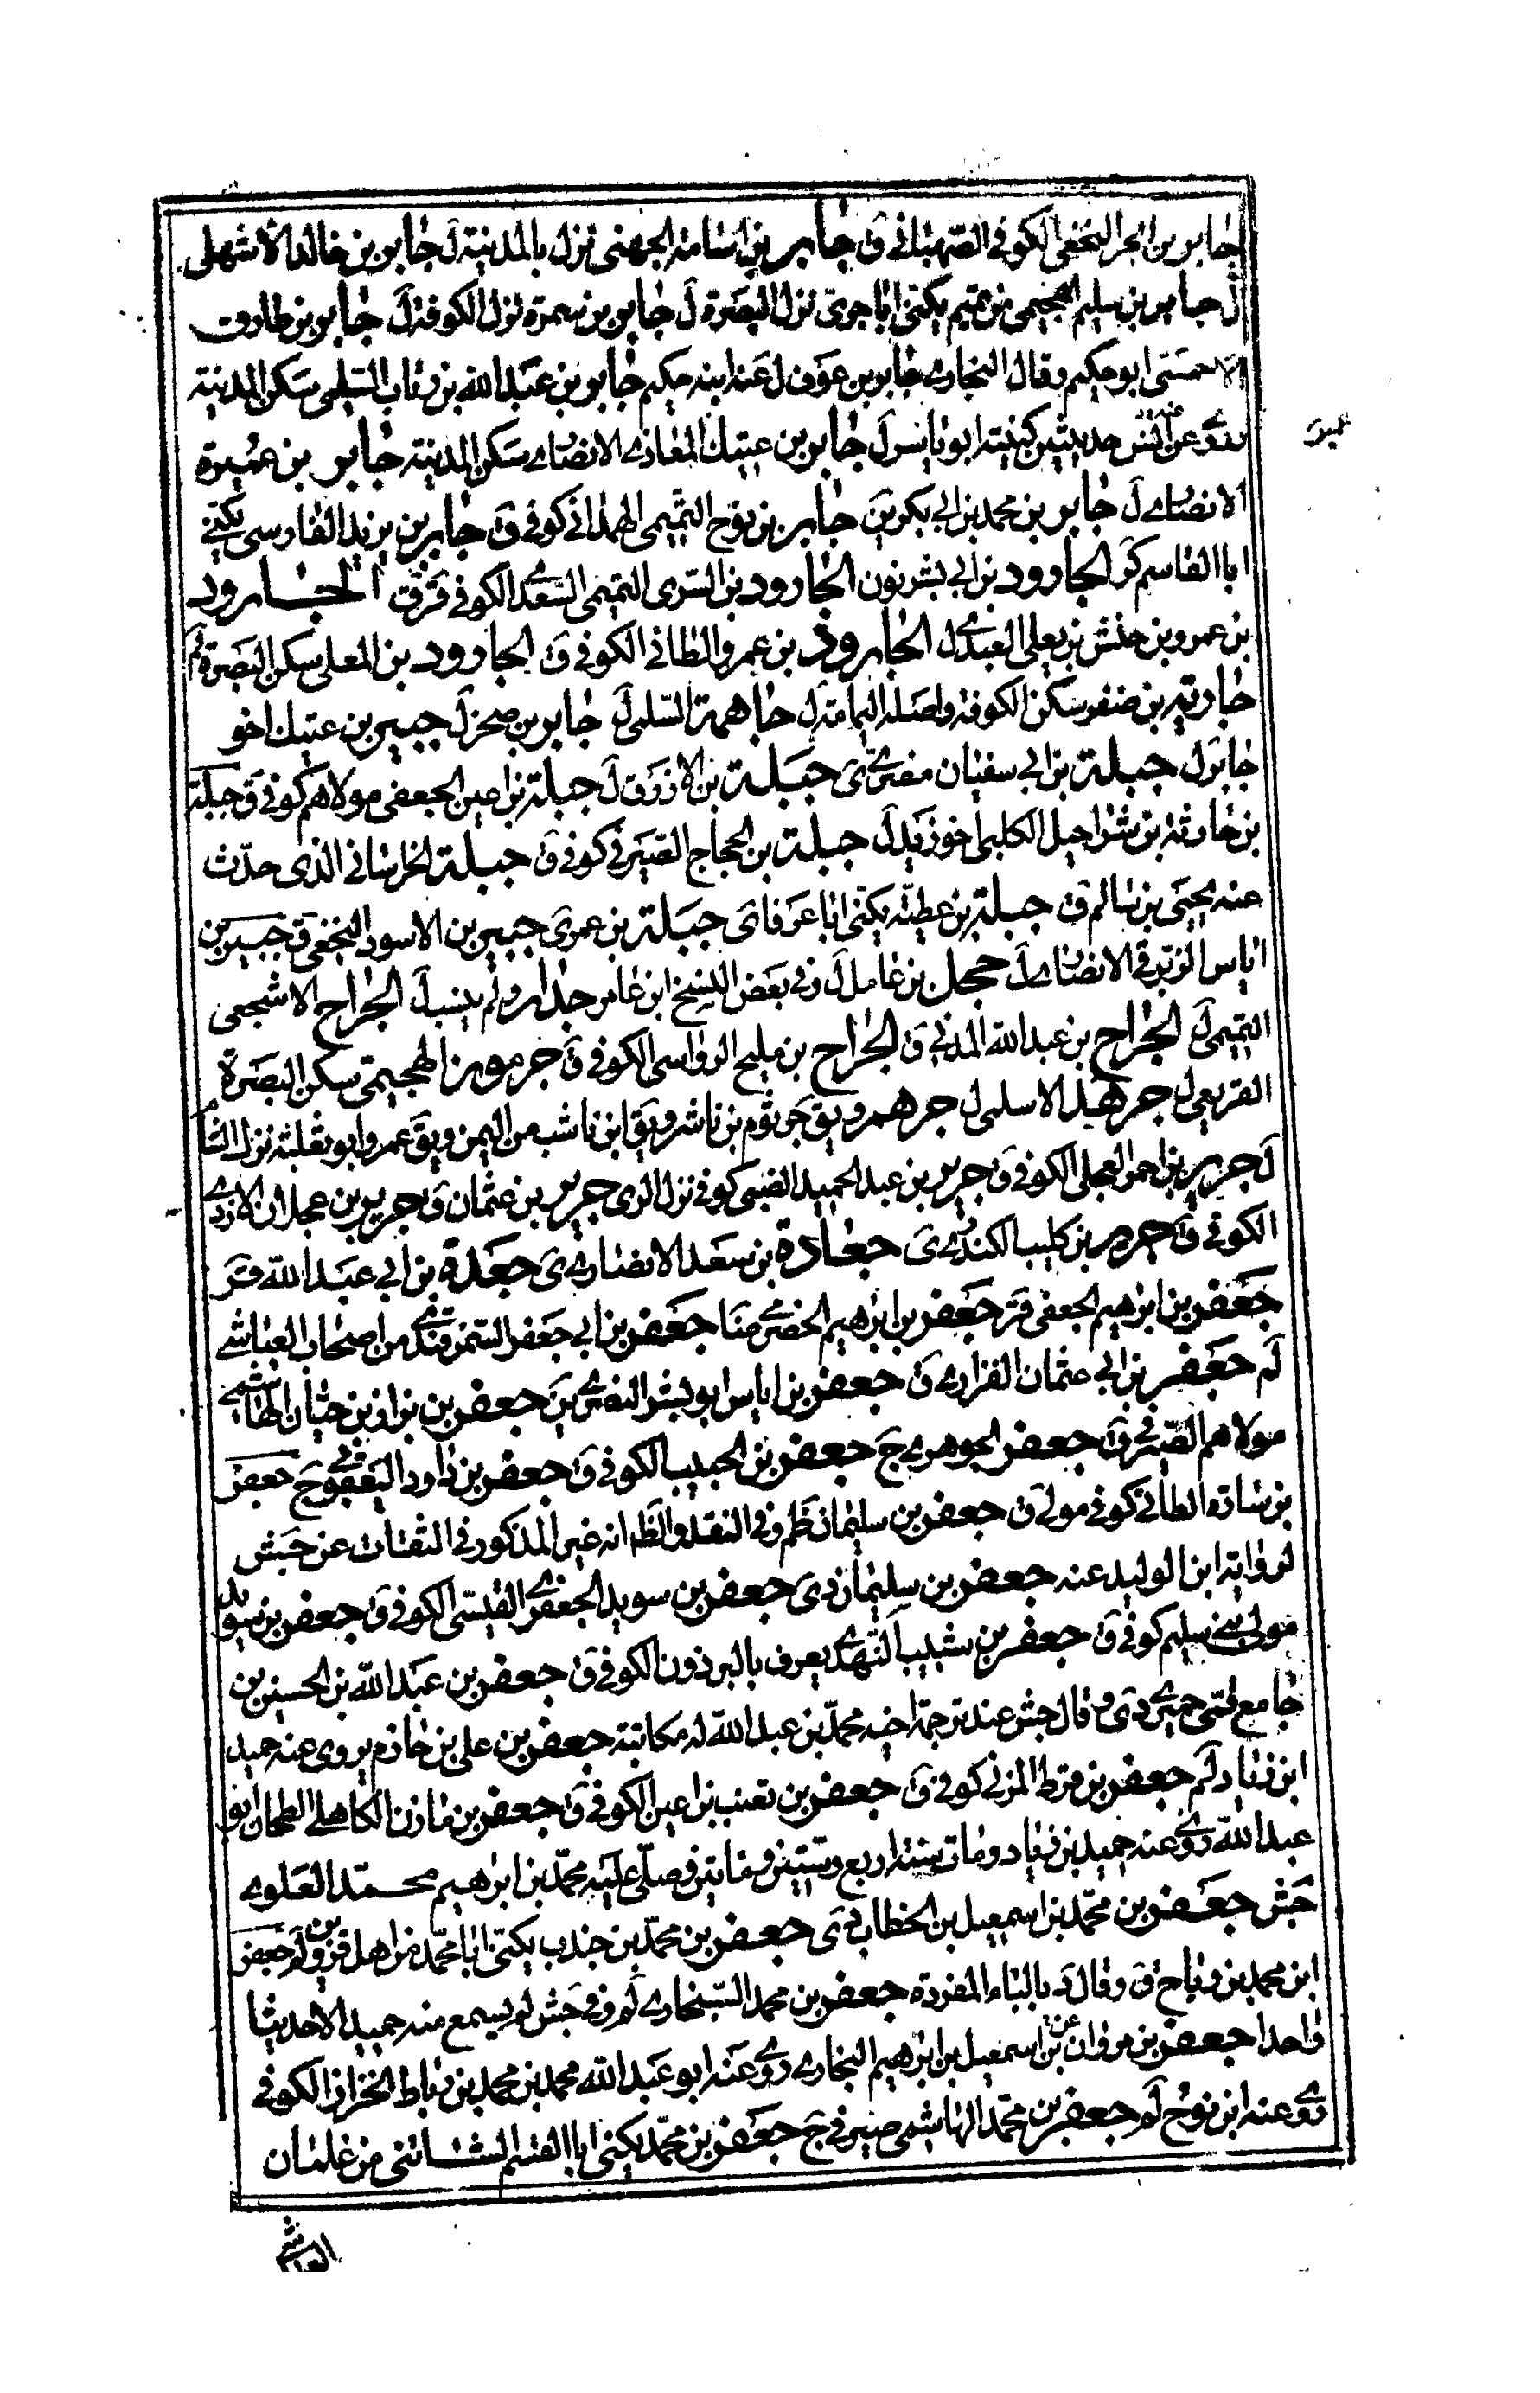 جابر بن الحر النخعي الكوفي الصهباني ق جابر بن اسامة الجهني نزل بالمدينة ل جابر بن خالد الاشهلي
ل جابر بن سليم الهجيمي من تميم يكنى ابا جرى نزل البصرة ل جابر بن سمرة نزل الكوفة ل جابر بن طارق
الاحمسي ابو حكيم وقال البخاري جابر بن عوف ل عنه ابنه حكيم جابر بن عبد الله بن رئاب السلمي سكن المدينة
روى عن انس حديثين كنيته ابو ياسر ل جابر بن عتيك المعاذي الانصاري سكن المدينة جابر بن عميرة
الانصاري ل جابر بن محمد بن ابي بكر ين جابر بن نوح التميمي الهمداني كوفي ق جابر بن يزيد الفارسي يكنى
ابا القاسم كر الجارود بن ابي بشر نون الجارود بن السري التميمي السعدي الكوفي قر ق الجارود
بن عمرو بن حنش بن يعلى العبدي ل الجارود بن عمرو الطائي الكوفي ق الجارود بن المعلى سكن البصرة لم
جارية بن ضفر سكن الكوفة واصله اليمامة ل جاهمة السلمي ل جابر بن صخر ل جبير بن عتيك اخو
جابر ل جبلة بن ابي سفيان مفترى ى جبلة بن الازرق ل جبلة بن اعين الجعفي مولاهم كوفي ق جبلة
بن حارثة بن شراحيل الكلبي اخو زيد ل جبلة بن الحجاج الصيرفي كوفي ق جبلة الخراساني الذي حدث
عنه يحيى بن سالم ق جبلة بن عطية يكنى ابا عرفا ى جبلة بن عمر ى جبير بن الاسود النخعي ق جبير بن
اياس الزرقي الانصاري ل جحل بن عامل ل وفي بعض النسخ ابن عامر جدار ولم ينسب ل الجراح الاشجعي
التميمي ل الجراح بن عبد الله المدني ق الجراح بن مليح الرواسي الكوفي ق جرموز الهجيمي سكن البصرة
القريعي ل جرهد الاسلمي ل جرهم ويق جرثوم بن ناشر ويق ابن ناشب من اليمن ويق عمرو ابو ثعلبة نزل الشام
ل جرير بن احمر العجلي الكوفي ق جرير بن عبد الحميد الضبي كوفي نزل الرى جرير بن عثمان ق جرير بن عجلان الازدي
الكوفي ق جرير بن كليب الكندي ى جعادة بن سعد الانصاري ى جعدة بن ابي عبد الله قر
جعفر بن ابراهيم الجعفي قر جعفر بن ابراهيم الحضرمي ضا جعفر بن ابي جعفر السمرقندي من اصحاب العياشي
لم جعفر بن ابي عثمان الفزاري ق جعفر بن اياس ابو بشر النضري ين جعفر بن بزاز بن حيان الهاشمي
مولاهم الصيرفي ق جعفر الجوهري ج جعفر بن الحبيب الكوفي ق جعفر بن داود اليعقوبي ج جعفر
بن سارة الطائي كوفي مولى ق جعفر بن سليمان ظم وفي النقد والظ انه غير المذكور في الثقات عن جش
لرواية ابن الوليد عنه جعفر بن سليمان دى جعفر بن سويد الجعفري القيسي الكوفي ق جعفر بن سويد
مولى بني سليم كوفي ق جعفر بن شبيب النهدي يعرف بالبرذون الكوفي ق جعفر بن عبد الله بن الحسين بن
جامع قمي حميري دى وقال جش عند ترجمة اخيه محمد بن عبد الله له مكاتبة جعفر بن علي بن حازم يروى عنه حميد
ابن زياد لم جعفر بن قرط المزني كوفي ق جعفر بن قعنب بن اعين الكوفي ق جعفر بن مازن الكاهلي الطحان ابو
عبد الله روى عنه حميد بن زياد ومات سنة اربع وستين ومأتين وصلى عليه محمد بن ابراهيم محمد العلوي
جش جعفر بن محمد بن اسمعيل بن الخطاب دى جعفر بن محمد بن جندب يكنى ابا محمد من اهل قزوين لم جعفر
ابن محمد بن رباح ق وقال د بالباء المفردة جعفر بن محمد السنجاري لم وفي جش لم يسمع منه حميد الا حديثا
واحدا جعفر بن مروان عن بن اسمعيل بن ابراهيم البخاري روى عنه ابو عبد الله محمد بن محمد بن رباط الخزاز الكوفي
روى عنه ابن نوح لم جعفر بن محمد الهاشمي صيرفي ج جعفر بن محمد يكنى ابا القسم الشاشي من غلمان
العياشي